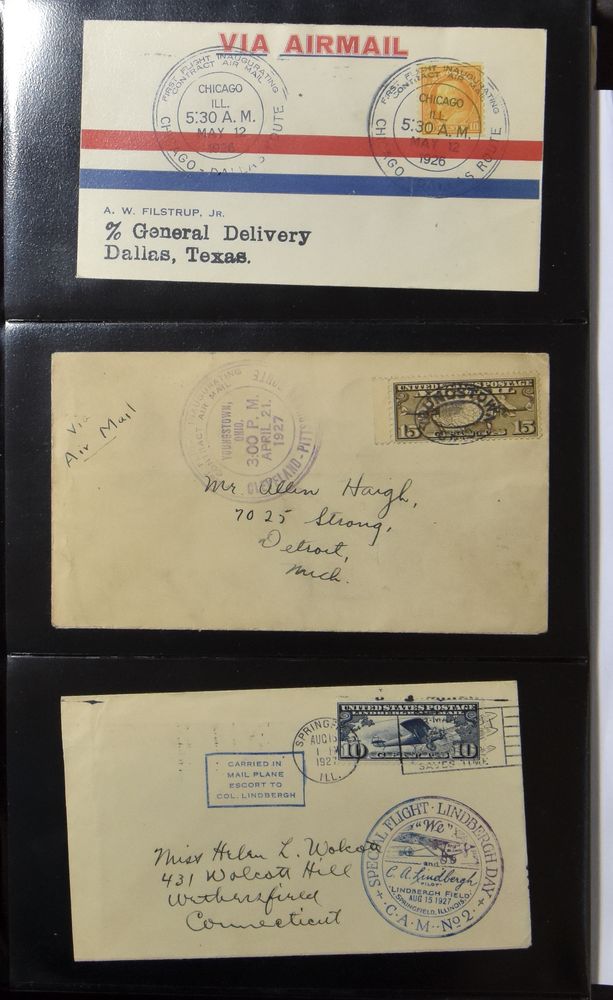 VIA AIRMAIL
FIRST FLIGHT INAUGURATING
CONTRACT AIR MAIL
CHICAGO
ILL.
5:30 A. M.
MAY 12
1926
CHICAGO - DALLAS ROUTE
FIRST FLIGHT INAUGURATING
CONTRACT AIR MAIL
CHICAGO
ILL.
5:30 A. M.
MAY 12
1926
CHICAGO - DALLAS ROUTE
A. W. FILSTRUP, JR.
% General Delivery
Dallas, Texas.
Via
Air Mail
INAUGURATING
CONTRACT AIR MAIL
ROUTE
YOUNGSTOWN,
OHIO.
3:00 P. M.
APRIL 21.
1927
CLEVELAND-PITTS
UNITED STATES POSTAGE
YOUNGSTOWN
15 15
Mr. Allen Haigh,
7025 Strong,
Detroit,
Mich.
UNITED STATES POSTAGE
LINDBERGH AIR MAIL
10 10
SPRING
AUG 15
1927
ILL.
SAVES TIME
CARRIED IN
MAIL PLANE
ESCORT TO
COL. LINDBERGH
Miss Helen L. Wolcott
431 Wolcott Hill
Wethersfield
Connecticut
SPECIAL FLIGHT · LINDBERGH DAY
"We"
and
C. A. Lindbergh
PILOT
LINDBERGH FIELD
SPRINGFIELD, ILLINOIS.
AUG 15 1927
+ C·A·M·No 2· +